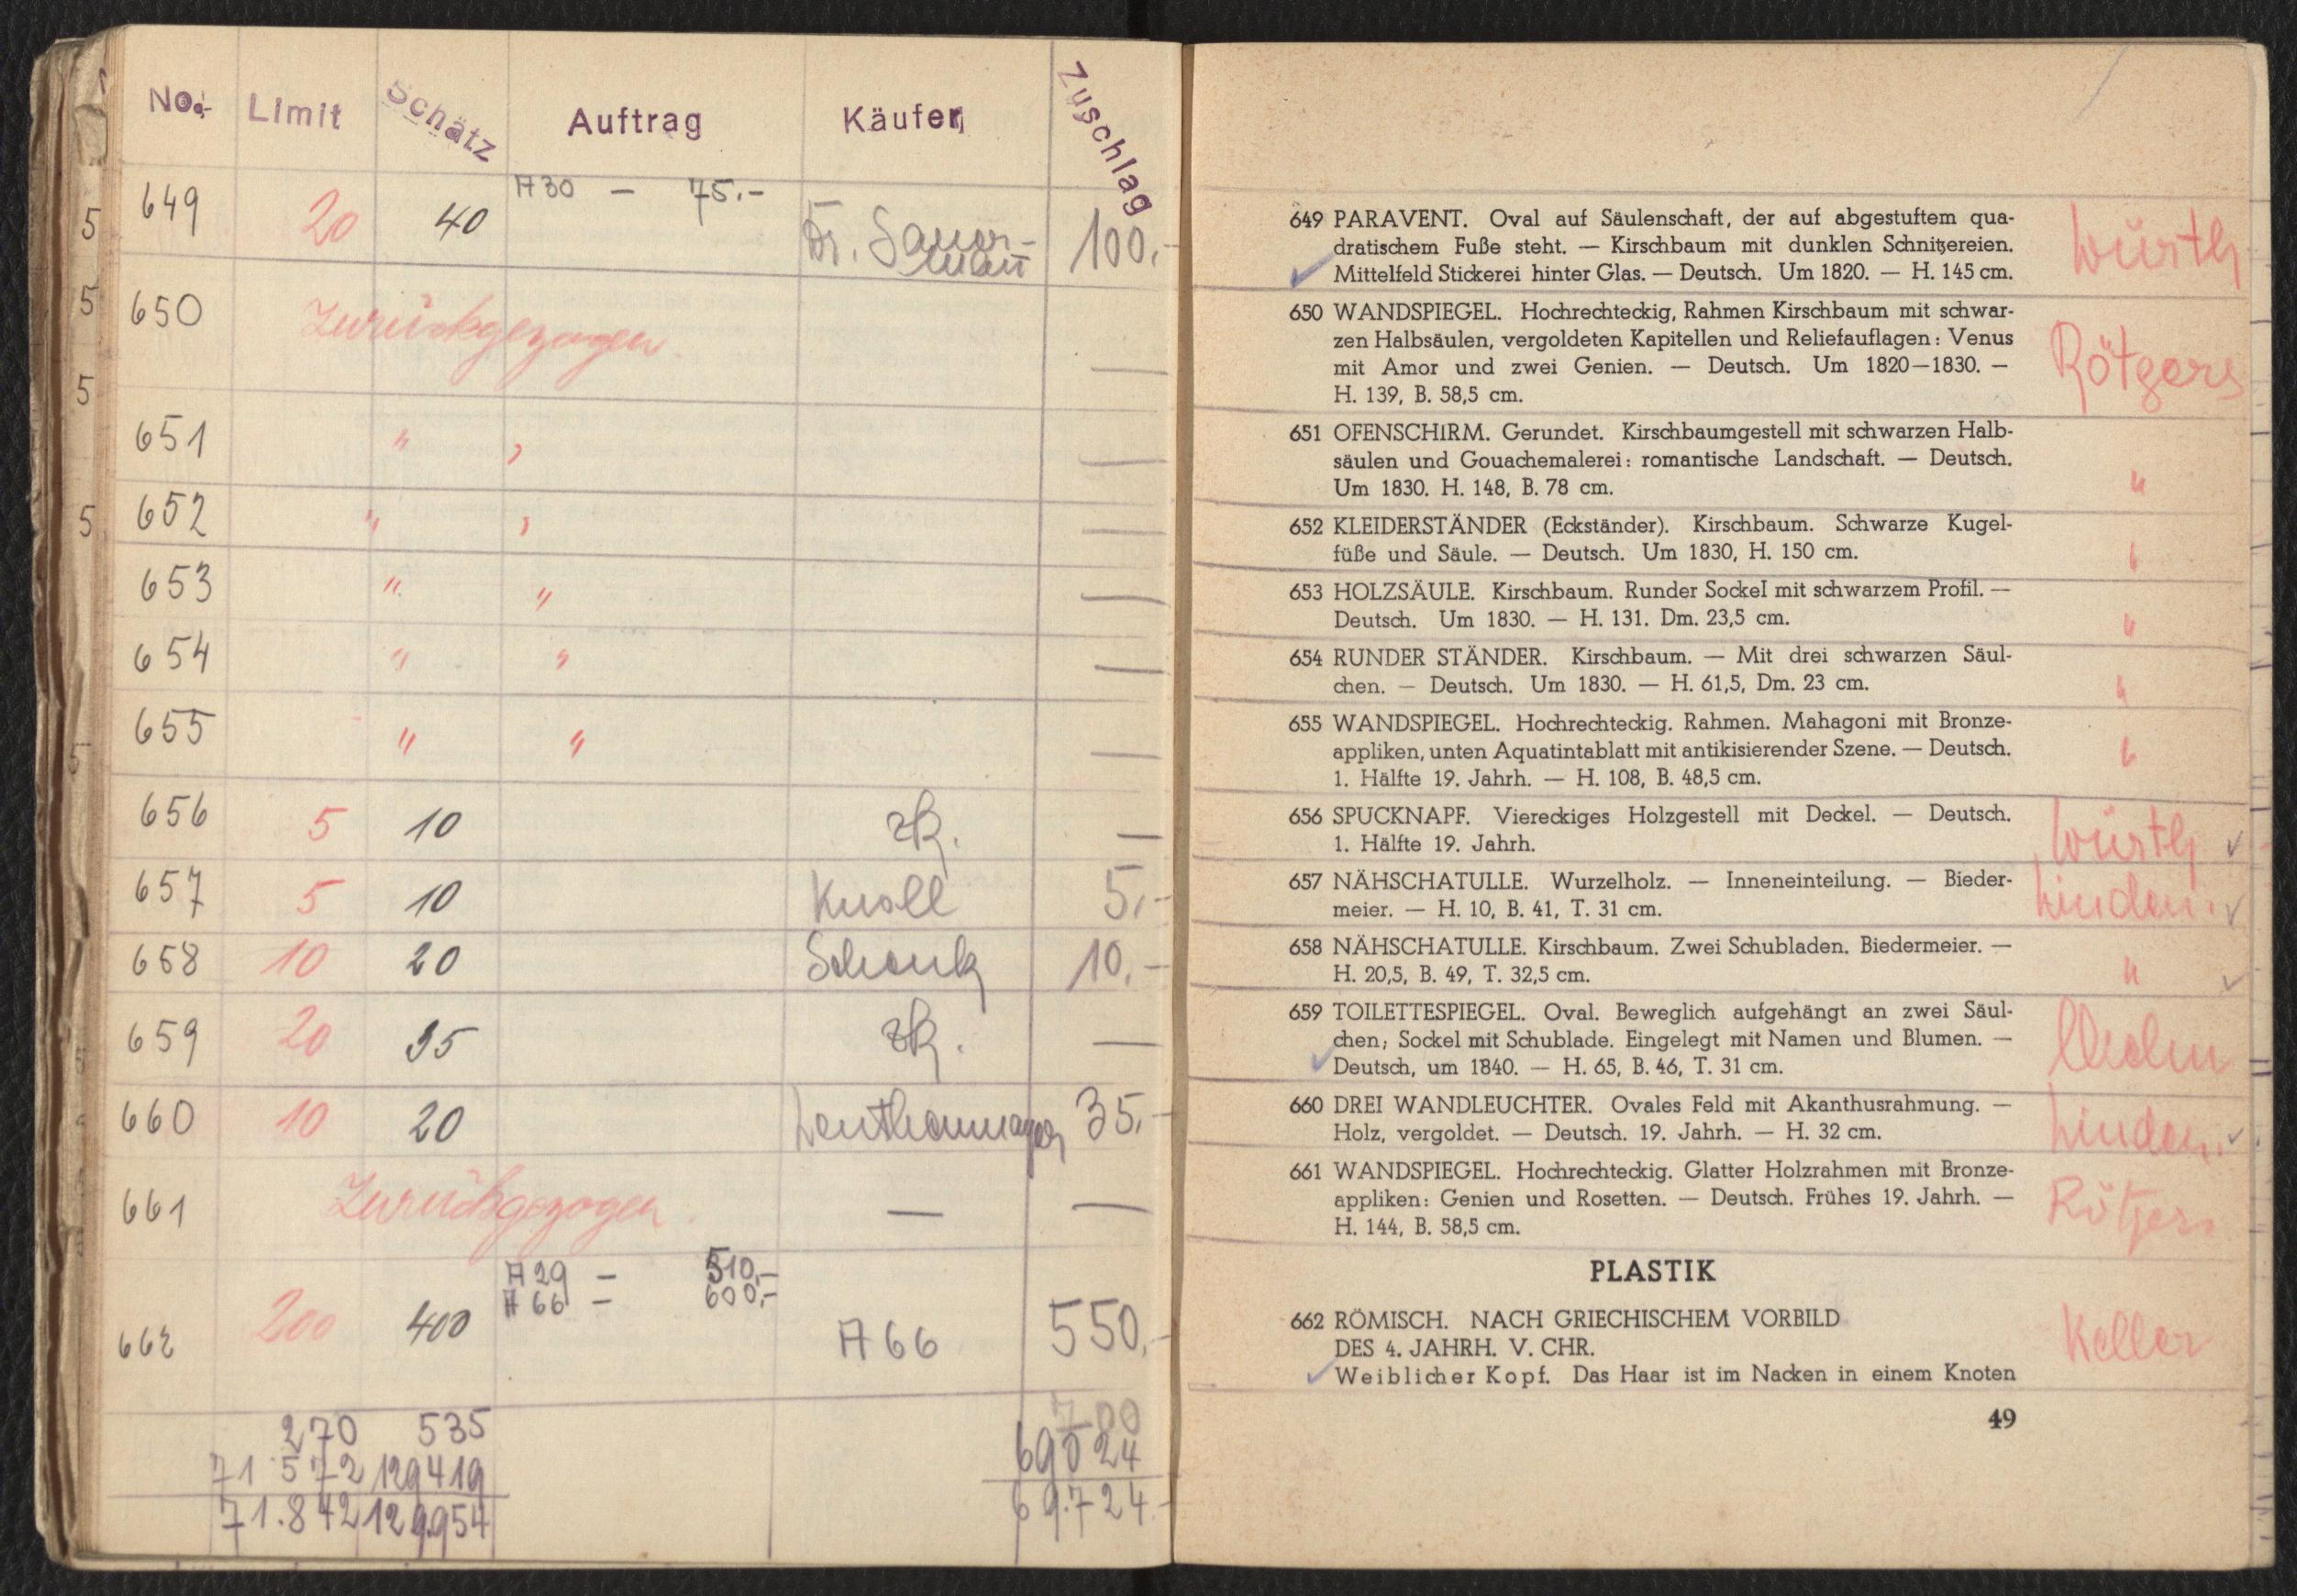 No. Limit Schätz Auftrag Käufer Zuschlag
A 30 — 75.-
649 20 40 Dr. Sauer- 100.-
mann
650 Zurückgezogen. —
651 " " —
652 " " —
653 " " —
654 " " —
655 " " —
656 5 10 zk. —
657 5 10 Knoll 5,-
658 10 20 Schenk 10.-
659 20 35 zk. —
660 10 20 35,-
661 Zurückgezogen. — —
A 29 — 510,-
A 66 — 600,-
662 200 400 A 66 550.-
270 535 700
71 572 129419 69024
71.842 129954 69.724.-
5
5
5
5
649 PARAVENT. Oval auf Säulenschaft, der auf abgestuftem qua-
dratischem Fuße steht. — Kirschbaum mit dunklen Schnitzereien.
Mittelfeld Stickerei hinter Glas. — Deutsch. Um 1820. — H. 145 cm.
Würth
650 WANDSPIEGEL. Hochrechteckig, Rahmen Kirschbaum mit schwar-
zen Halbsäulen, vergoldeten Kapitellen und Reliefauflagen: Venus
mit Amor und zwei Genien. — Deutsch. Um 1820—1830. —
H. 139, B. 58,5 cm.
Rötgers
651 OFENSCHIRM. Gerundet. Kirschbaumgestell mit schwarzen Halb-
säulen und Gouachemalerei: romantische Landschaft. — Deutsch.
Um 1830. H. 148, B. 78 cm.
"
652 KLEIDERSTÄNDER (Eckständer). Kirschbaum. Schwarze Kugel-
füße und Säule. — Deutsch. Um 1830, H. 150 cm.
"
653 HOLZSÄULE. Kirschbaum. Runder Sockel mit schwarzem Profil. —
Deutsch. Um 1830. — H. 131. Dm. 23,5 cm.
"
654 RUNDER STÄNDER. Kirschbaum. — Mit drei schwarzen Säul-
chen. — Deutsch. Um 1830. — H. 61,5, Dm. 23 cm.
"
655 WANDSPIEGEL. Hochrechteckig. Rahmen. Mahagoni mit Bronze-
appliken, unten Aquatintablatt mit antikisierender Szene. — Deutsch.
1. Hälfte 19. Jahrh. — H. 108, B. 48,5 cm.
"
656 SPUCKNAPF. Viereckiges Holzgestell mit Deckel. — Deutsch.
1. Hälfte 19. Jahrh.
Würth
657 NÄHSCHATULLE. Wurzelholz. — Inneneinteilung. — Bieder-
meier. — H. 10, B. 41, T. 31 cm.
Linden.
658 NÄHSCHATULLE. Kirschbaum. Zwei Schubladen. Biedermeier. —
H. 20,5, B. 49, T. 32,5 cm.
"
659 TOILETTESPIEGEL. Oval. Beweglich aufgehängt an zwei Säul-
chen; Sockel mit Schublade. Eingelegt mit Namen und Blumen. —
Deutsch, um 1840. — H. 65, B. 46, T. 31 cm.
660 DREI WANDLEUCHTER. Ovales Feld mit Akanthusrahmung. —
Holz, vergoldet. — Deutsch. 19. Jahrh. — H. 32 cm.
Linden.
661 WANDSPIEGEL. Hochrechteckig. Glatter Holzrahmen mit Bronze-
appliken: Genien und Rosetten. — Deutsch. Frühes 19. Jahrh. —
H. 144, B. 58,5 cm.
Rötgers
PLASTIK
662 RÖMISCH. NACH GRIECHISCHEM VORBILD
DES 4. JAHRH. V. CHR.
Weiblicher Kopf. Das Haar ist im Nacken in einem Knoten
Keller
49